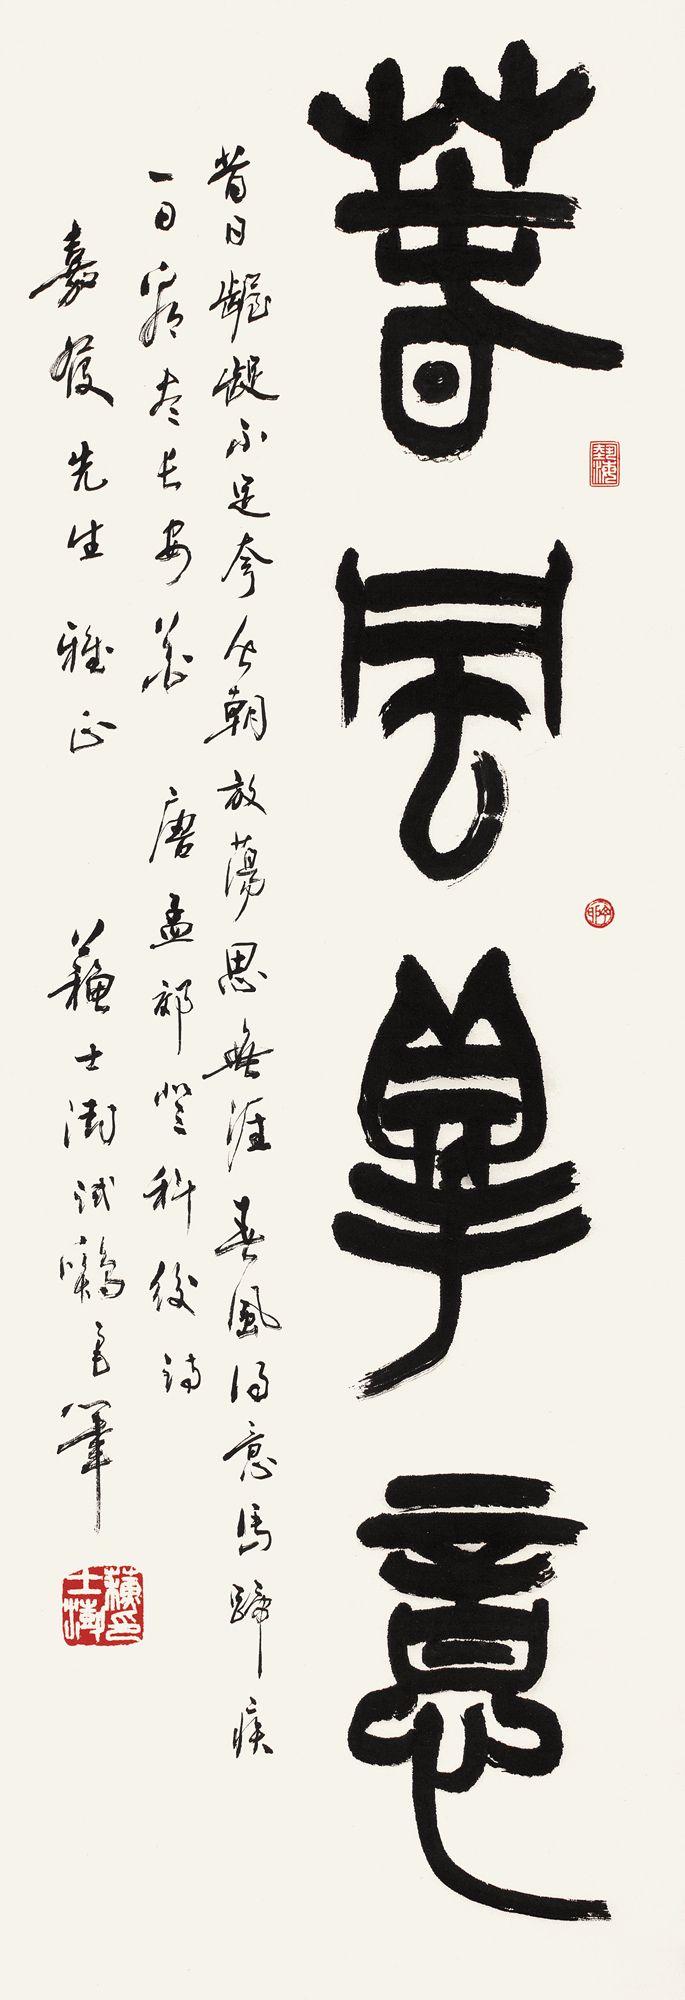 春風得意
昔日齷齪不足夸今朝放蕩思無涯春風得意馬蹄疾
一日看盡長安花 唐孟郊登科後詩
嘉 先生雅正 蘇士澍試 毛筆
蘇士澍印